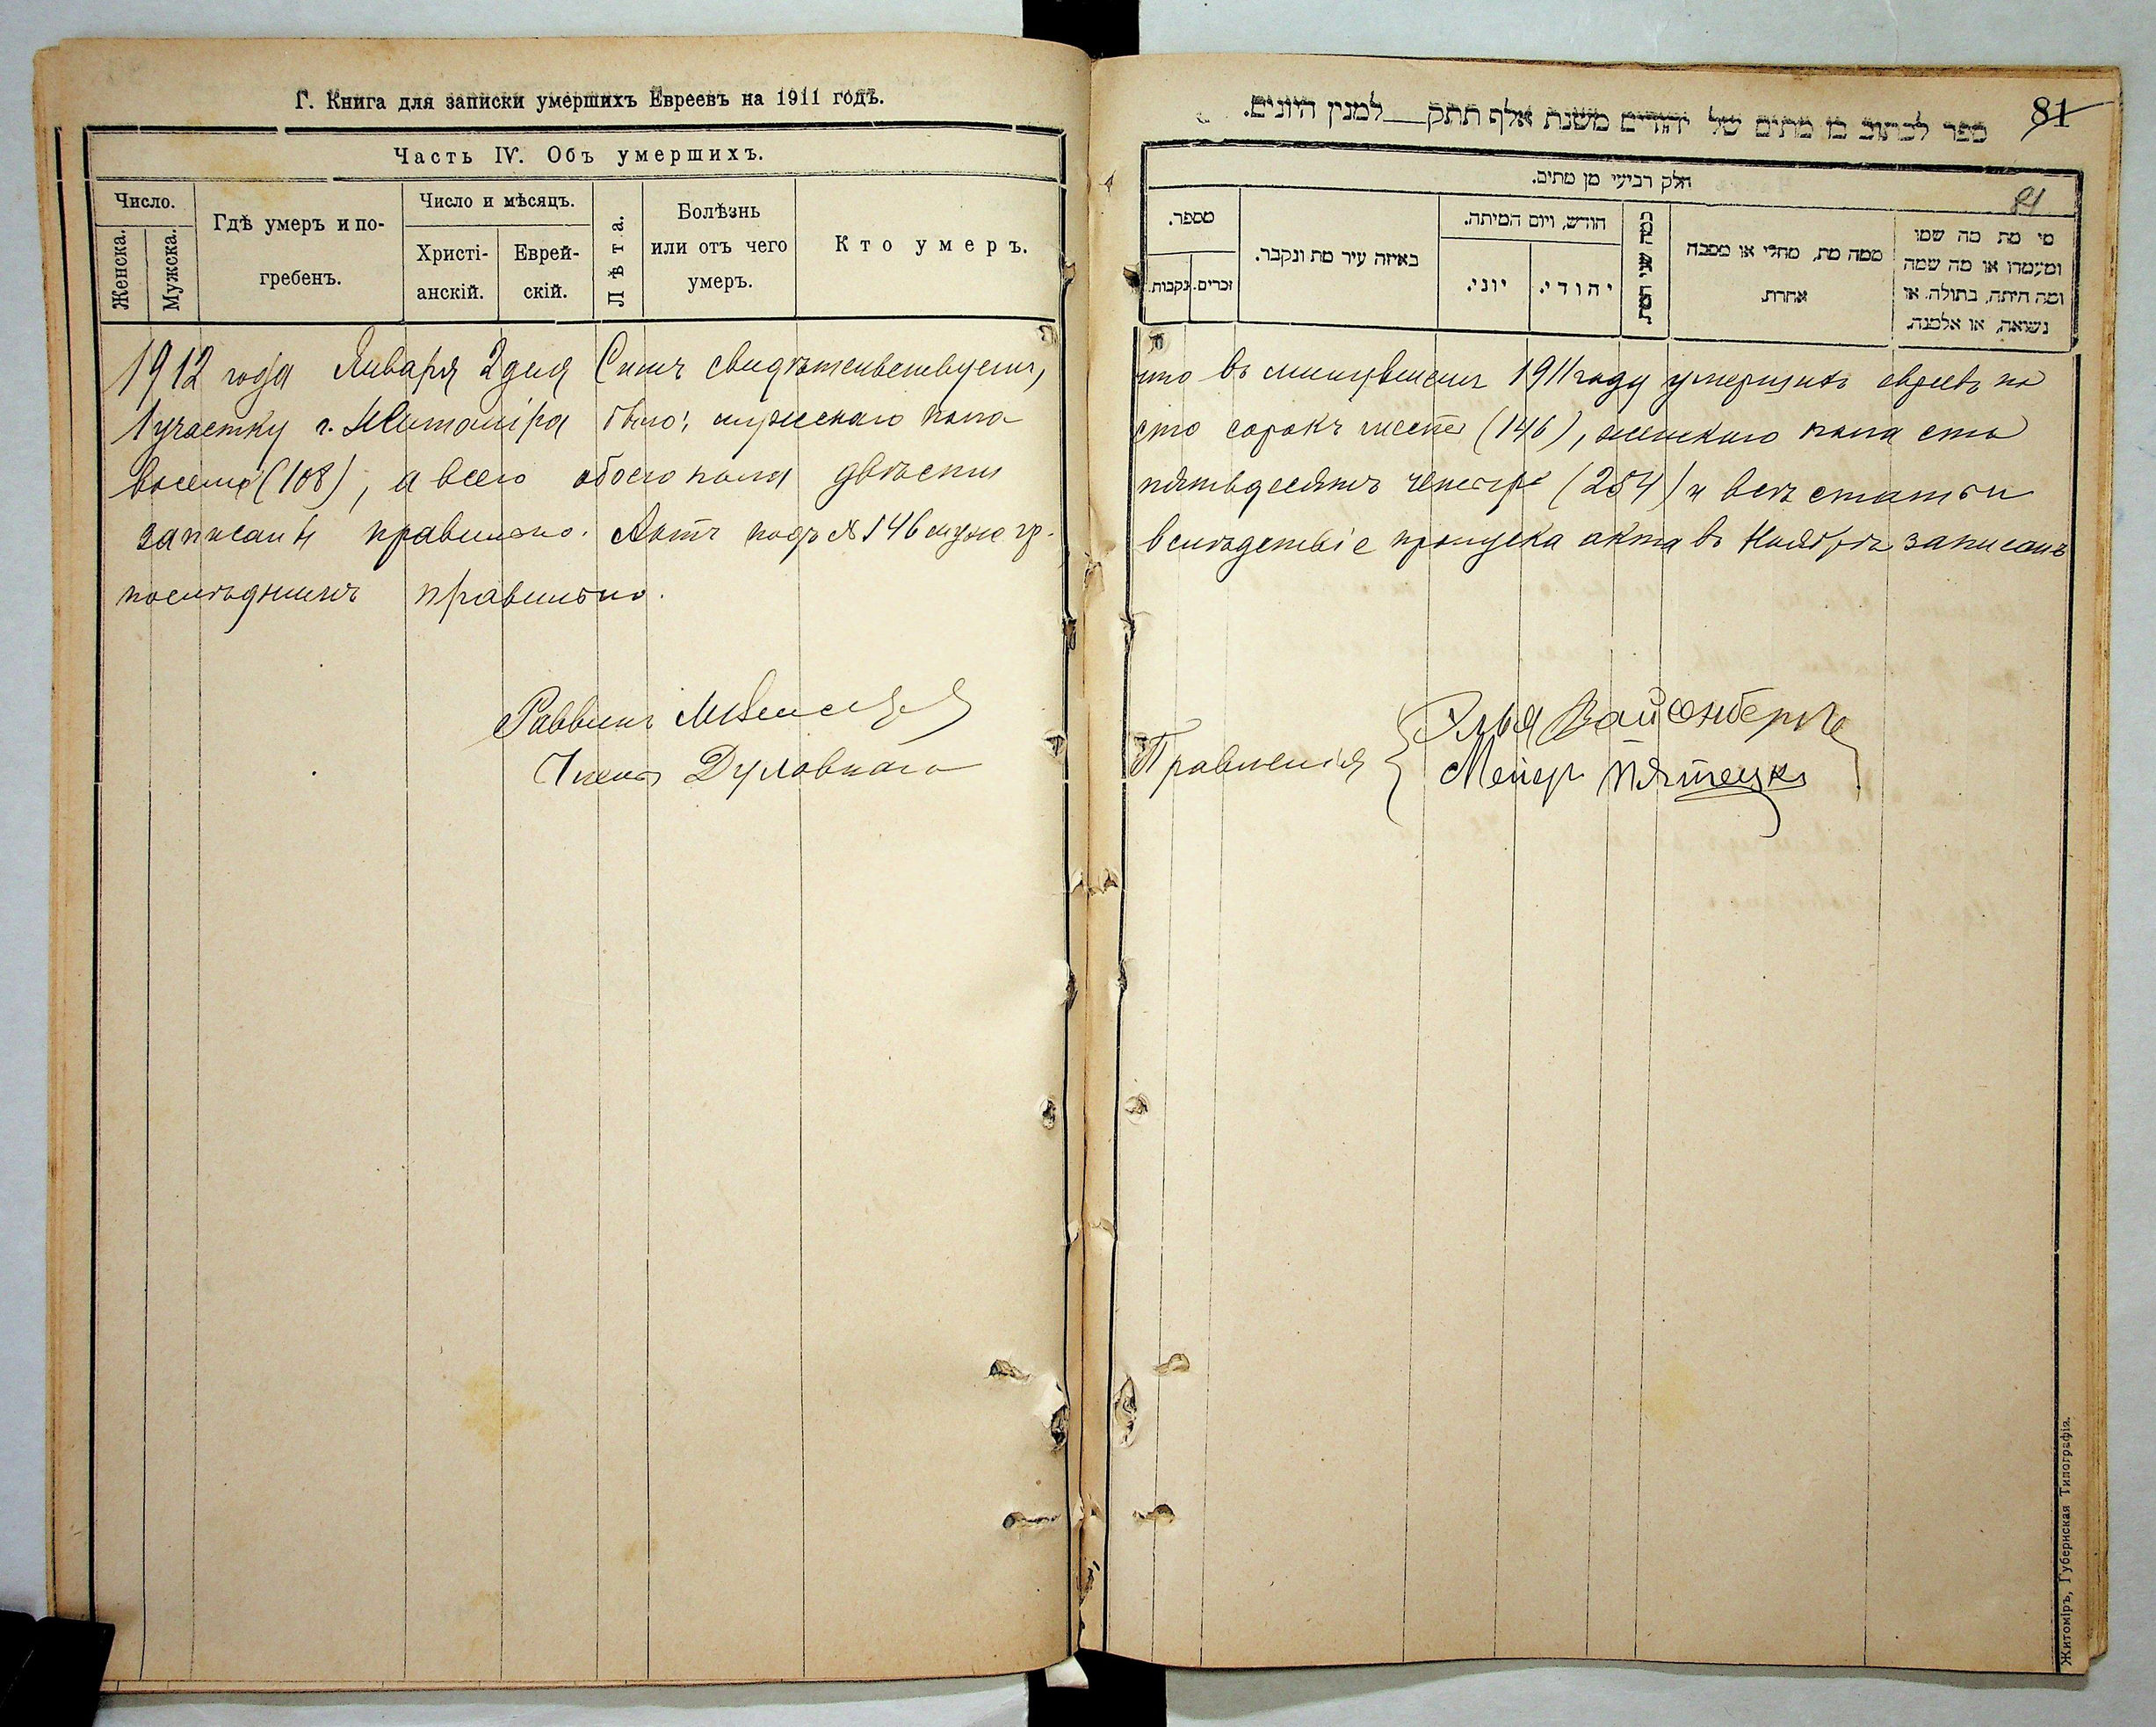 Г. Книга для записки умершихъ Евреевъ на 1911 годъ.
Часть IV. Объ умершихъ.
Число.
Женска.
Мужска.
Гдѣ умеръ и по-
гребенъ.
Число и мѣсяцъ.
Христі-
анскій.
Еврей-
скій.
Лѣта.
Болѣзнь
или отъ чего
умеръ.
Кто умеръ.
1912 года Января 2 дня Симъ свидѣтельствуемъ,
1 участку г. Житоміра было: мужскаго пола
восемь (108), а всего обоего пола двѣсти
записаны правильно. Актъ подъ № 146 муж. гр.
послѣднимъ правильно.
Раввинъ
Члены
ספר לכתוב בו מתים של יהודים משנת אלף תתק למנין היונים.
81
81
חלק רביעי מן מתים.
מספר.
נקבות.
זכרים.
באיזה עיר מת ונקבר.
חודש, ויום המיתה.
יוני.
יהודי.
ממה מת, מחלי או מסבה
אחרת.
מי מת מה שמו
ומעמדו או מה שמה
ומה היתה, בתולה, או
נשואה, או אלמנה.
что въ минувшемъ 1911 году умершихъ евреевъ по
сто сорокъ шесть (146), женскаго пола сто
пятьдесятъ четыре (254) и всѣ статьи
вслѣдствіе пропуска акта въ Ноябрѣ записанъ
Правленія
Элья Вайсенбергъ
Мейер
Житоміръ, Губернская Типографія.